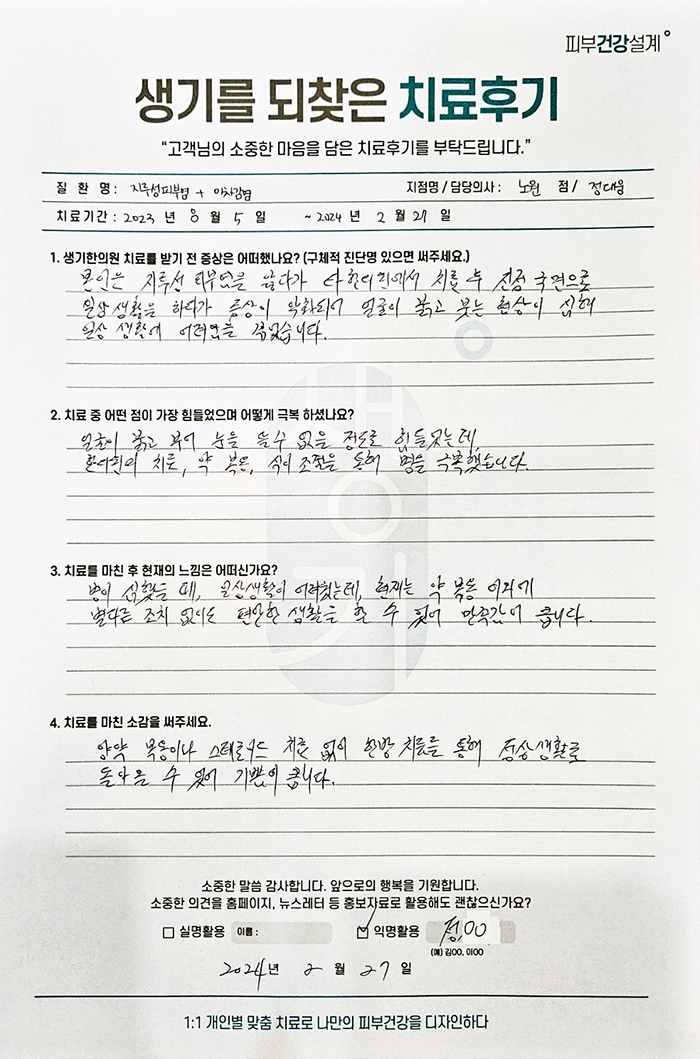 피부건강설계
생기를 되찾은 치료후기
“고객님의 소중한 마음을 담은 치료후기를 부탁드립니다.”
질 환 명 : 지루성피부염 + 2차감염 지점명 / 담당의사 : 노원 점 / 정대웅
치료기간 : 2023 년 8 월 5 일 ~ 2024 년 2 월 27 일
1. 생기한의원 치료를 받기 전 증상은 어떠했나요? (구체적 진단명 있으면 써주세요.)
본인은 지루성 피부염을 앓다가 타 한의원에서 치료 후 진정 국면으로
일상 생활을 하다가 증상이 악화되어 얼굴이 붉고 붓는 현상이 심해
일상 생활에 어려움을 겪었습니다.
2. 치료 중 어떤 점이 가장 힘들었으며 어떻게 극복 하셨나요?
얼굴이 붉고 부어 눈을 뜰 수 없을 정도로 힘들었는데,
한의원의 치료, 약 복용, 식이 조절을 통해 병을 극복했습니다.
3. 치료를 마친 후 현재의 느낌은 어떠신가요?
병이 심했을 때, 일상생활이 어려웠는데, 현재는 약 복용 이외에
별다른 조치 없이도 편안한 생활을 할 수 있어 만족감이 큽니다.
4. 치료를 마친 소감을 써주세요.
양약 복용이나 스테로이드 치료 없이 한방 치료를 통해 정상생활로
돌아올 수 있어 기쁨이 큽니다.
소중한 말씀 감사합니다. 앞으로의 행복을 기원합니다.
소중한 의견을 홈페이지, 뉴스레터 등 홍보자료로 활용해도 괜찮으신가요?
실명활용 이름 : 익명활용 정OO
(예) 김OO, 이OO
2024년 2 월 27 일
1:1 개인별 맞춤 치료로 나만의 피부건강을 디자인하다